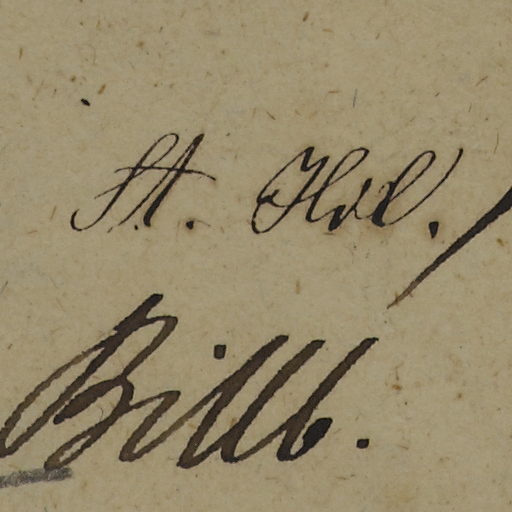 St. Hol.
Billb.